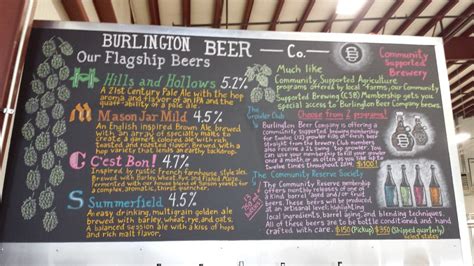 BURLINGTON BEER Co.
Our Flagship Beers
Hills and Hollows 5.2%
A 21st Century Pale Ale with the hop
aroma and flavor of an IPA and the
quaff-ability of a pale ale.
Mason Jar Mild 4.5%
An English inspired Brown Ale brewed
with an array of specialty malts to
a garnet colored ale with
toasted and roasted flavor. Brewed with a
hop variety that lends an earthy backdrop.
C'est Bon! 4.7%
Inspired by rustic French farmhouse style
ales. Brewed with Barley, Wheat, Rye, and
fermented with our house blend of Saison yeasts for
a complex, aromatic, thirst quencher.
Summerfield 4.5%
An easy drinking, multigrain golden ale
brewed with barley, wheat, rye, and oats.
A balanced session ale with a kiss of hops
and rich malt flavor.
Community
Supported
Brewery
Much like
Community Supported Agriculture
programs offered by local farms, our Community
Supported Brewing (CSB) Memberships gets you
special access to Burlington Beer Company brews.
Choose from 2 programs!
The
Growler Club
Burlington Beer Company is offering a
community supported brewing membership
for twelve (12) growler fills of beer
straight from the brewery. Club members
also receive a 2% being topper. You can
use your membership to fill your growler
once a month or as often as you like up to
twelve times throughout 2014 $100!
The Community Reserve Society
The Community Reserve membership
offers monthly releases of one of
a kind barrel aged and/or sour
beers. These beers will be produced
at an artisanal level, highlighting
local ingredients, barrel aging, and blending techniques.
All of these beers are to be bottle conditioned, and hand
crafted with care. $150 (Pickup) $350 (Shipped quarterly)